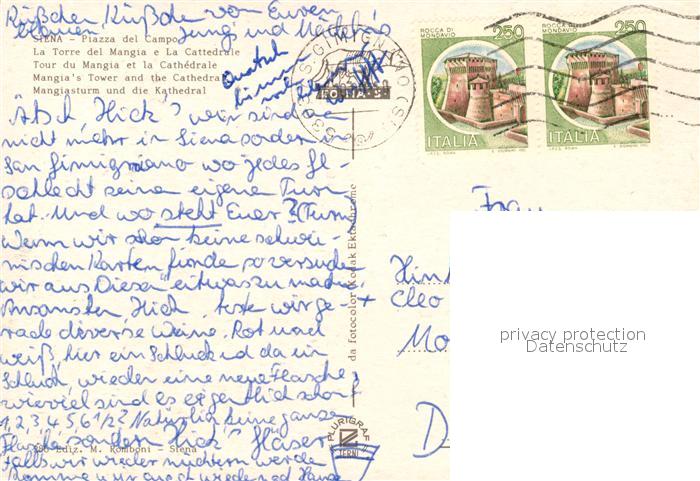 Küßchen, Küßchen von Euren
SIENA - Piazza del Campo
La Torre del Mangia e La Cattedrale
Tour du Mangia et la Cathédrale
Mangia's Tower and the Cathedral
Mangiasturm und die Kathedral
S. GIMIGNANO (SI)
530
ROCCA DI MONDAVIO 250
ITALIA
ROCCA DI MONDAVIO 250
ITALIA
"Ätsch, Hick" wir sind
nicht mehr in Siena sondern in
San Gimignano wo jedes Ge-
schlecht seine eigene Turm
hat. Und wo steht Euer? (Turm)
Wenn wir schon keine schwei-
nischen Karten finde so versuche
wir aus Dieser etwas zu mache
Ansonsten Hick, teste wir ge-
rade diverse Weine. Rot und
weiß, hier ein Schluck und da ein
Schluck, wieder eine neue Flasche,
wieviel sind es eigentlich schon
1,2,3,4,5,6 1/2? Natürlich keine ganze
Flasche sondern hick" Gläser
Falls wir wieder nüchtern werde
komme wir auch wieder
Frau
+ Cleo
Mo
D
da Fotocolor Kodak Ektachrome
PLURIGRAF
TERNI
Ediz. M. Romboni - Siena
privacy protection
Datenschutz